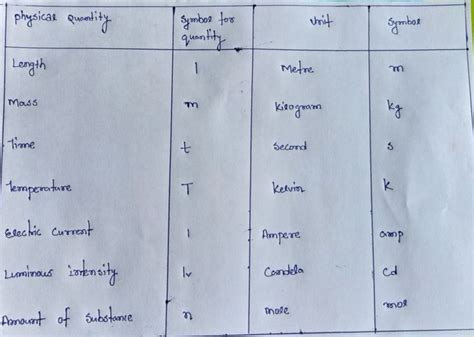 physical quantity symbol for Unit Symbol
quantity
Length l Metre m
Mass m kilogram kg
Time t second s
Temperature T kelvin k
Electric current I Ampere amp
Luminous intensity Iv Candela cd
Amount of substance n mole mol